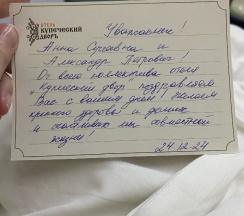 ОТЕЛЬ
КУПЕЧЕСКИЙ
ДВОРЪ
Уважаемые!
Анна Сергеевна и
Александр Петрович!
От всего коллектива отеля
"Купеческий двор" поздравляем
Вас с вашим днём! Желаем
крепкого здоровья и долгих
и счастливых лет совместной
жизни!
24.12.24